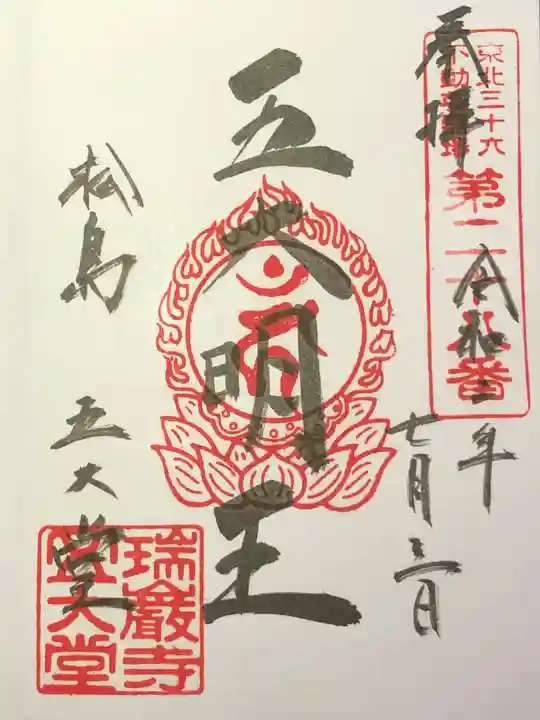 奉拝
東北三十六
不動尊霊場
第二十八番
令和二年
七月三日
五大明王
松島
五大堂
瑞巖寺
五大堂